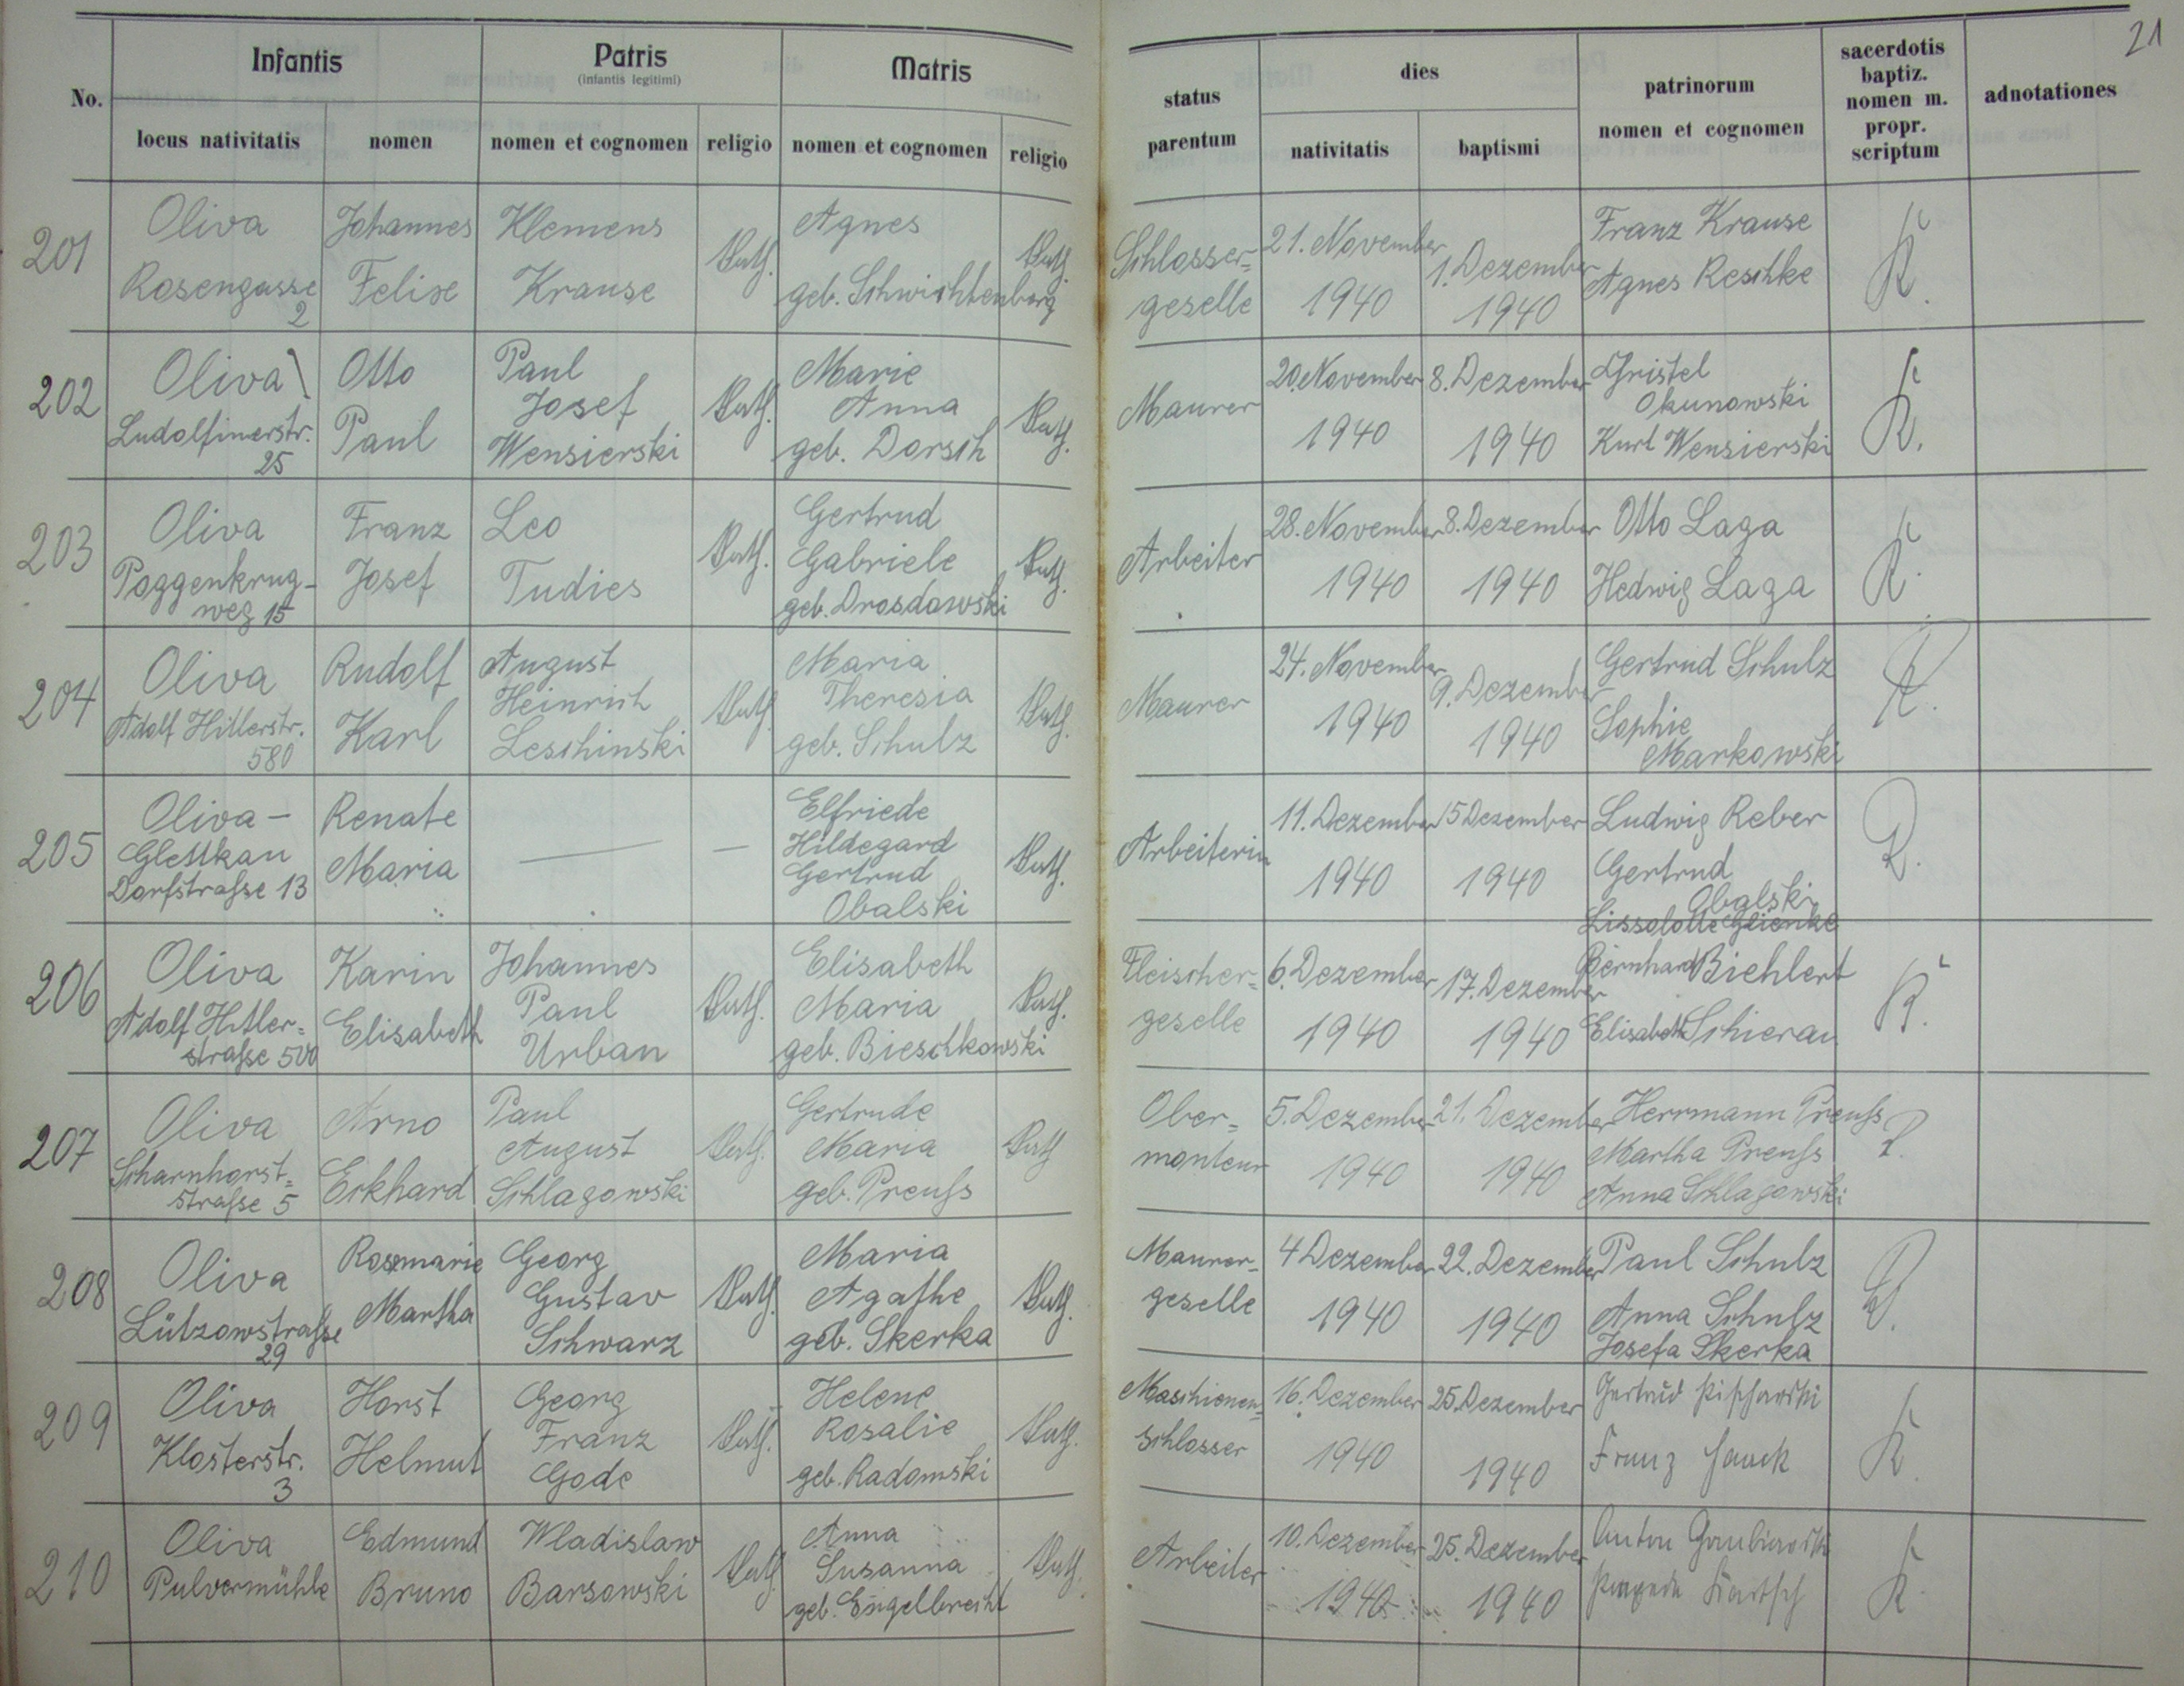 21
No.
Infantis
Patris
(infantis legitimi)
Matris
status parentum
dies
patrinorum
nomen et cognomen
sacerdotis
baptiz.
nomen m.
propr.
scriptum
adnotationes
locus nativitatis
nomen
nomen et cognomen
religio
nomen et cognomen
religio
nativitatis
baptismi
201
Oliva
Rosengasse
2
Johannes
Felixe
Klemens
Krause
kath.
Agnes
geb. Schwichtenberg
kath.
Schlosser=
geselle
21. November
1940
1. Dezember
1940
Franz Krause
Agnes Reschke
K.
202
Oliva
Ludolfinerstr.
25
Otto
Paul
Paul
Josef
Wensierski
kath.
Marie
Anna
geb. Dorsch
kath.
Maurer
20. November
1940
8. Dezember
1940
Christel
Okunowski
Kurt Wensierski
K.
203
Oliva
Poggenkrug-
weg 15
Franz
Josef
Leo
Tudies
kath.
Gertrud
Gabriele
geb. Drosdowski
kath.
Arbeiter
28. November
1940
8. Dezember
1940
Otto Laga
Hedwig Laga
K.
204
Oliva
Adolf Hitlerstr.
580
Rudolf
Karl
August
Heinrich
Leschinski
kath.
Maria
Theresia
geb. Schulz
kath.
Maurer
24. November
1940
9. Dezember
1940
Gertrud Schulz
Sophie
Markowski
K.
205
Oliva-
Glettkau
Dorfstraße 13
Renate
Maria
—
—
Elfriede
Hildegard
Gertrud
Obalski
kath.
Arbeiterin
11. Dezember
1940
15 Dezember
1940
Ludwig Reber
Gertrud
Obalski
Lisselotte Glienke
206
Oliva
Adolf Hitler=
straße 500
Karin
Elisabeth
Johannes
Paul
Urban
kath.
Elisabeth
Maria
geb. Bieschkowski
kath.
Fleischer=
geselle
6. Dezember
1940
17. Dezember
1940
Bernhard Biehlert
Elisabeth Schierau
K.
207
Oliva
Scharnhorst=
straße 5
Arno
Eckhard
Paul
August
Schlagowski
kath.
Gertrude
Maria
geb. Preuß
kath
Ober=
monteur
5. Dezember
1940
21. Dezember
1940
Herrmann Preuß
Martha Preuß
Anna Schlagowski
208
Oliva
Lützowstraße
29
Rosemarie
Martha
Georg
Gustav
Schwarz
kath.
Maria
Agathe
geb. Skerka
kath.
Maurer-
geselle
4 Dezember
1940
22. Dezember
1940
Paul Schulz
Anna Schulz
Josefa Skerka
209
Oliva
Klosterstr.
3
Horst
Helmut
Georg
Franz
Gode
kath.
Helene
Rosalie
geb. Radomski
kath.
Maschienen=
schlosser
16. Dezember
1940
25. Dezember
1940
Gertrud
Franz
K.
210
Oliva
Pulvermühle
Edmund
Bruno
Wladislaw
Barsowski
kath.
Anna
Susanna
geb. Engelbrecht
kath.
Arbeiter
10. Dezember
1940
25. Dezember
1940
Anton
K.